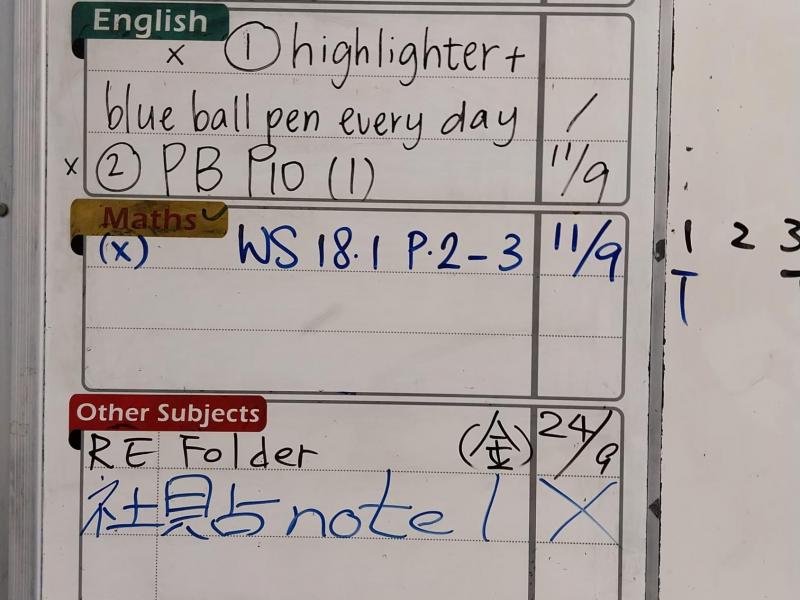 English
x ① highlighter +
blue ball pen every day /
x ② PB P10 (1) 11/9
Maths ✓
(x) WS 18.1 P.2-3 11/9
Other Subjects
RE Folder (金) 24/9
社貼note 1 X
1 2 3
T